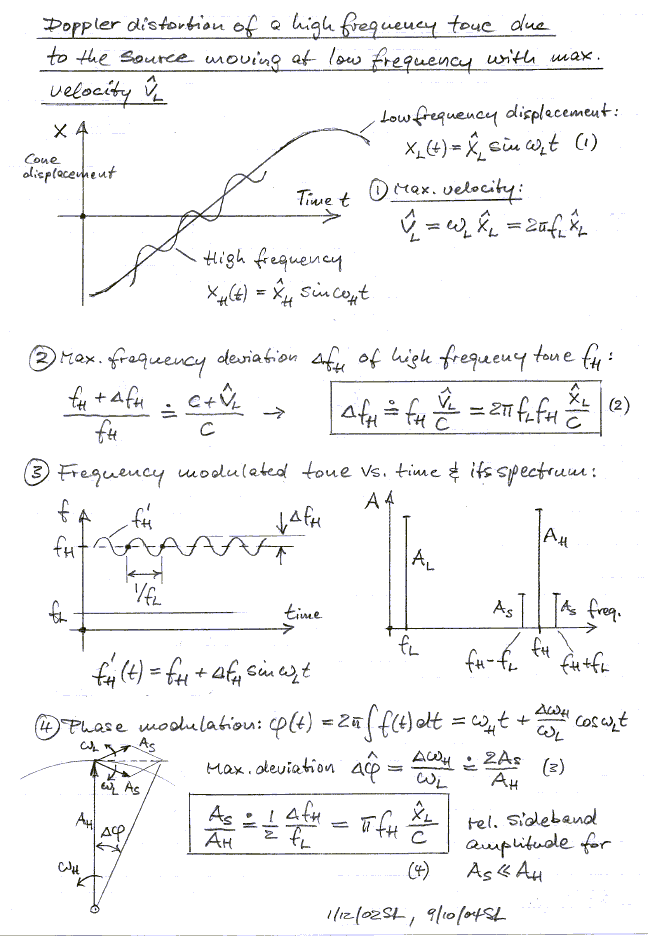 Doppler distortion of a high frequency tone due
to the source moving at low frequency with max.
velocity V̂_L
X
Cone
displacement
Low frequency displacement:
x_L(t) = x̂_L sin ω_L t (1)
Time t
① Max. velocity:
V̂_L = ω_L x̂_L = 2π f_L x̂_L
High frequency
x_H(t) = x̂_H sin ω_H t
② Max. frequency deviation Δf_H of high frequency tone f_H:
(f_H + Δf_H) / f_H ≐ (C + V̂_L) / C → Δf_H ≐ f_H V̂_L / C = 2π f_L f_H x̂_L / C (2)
③ Frequency modulated tone vs. time & its spectrum:
f
f_H'
Δf_H
f_H
1/f_L
f_L
time
A
A_L
A_H
A_S
A_S
freq.
f_L
f_H-f_L
f_H
f_H+f_L
f_H'(t) = f_H + Δf_H sin ω_L t
④ Phase modulation: φ(t) = 2π ∫ f(t) dt = ω_H t + Δω_H / ω_L cos ω_L t
ω_L
A_S
ω_L
A_S
A_H
Δφ
ω_H
Max. deviation Δφ̂ = Δω_H / ω_L ≐ 2A_S / A_H (3)
A_S / A_H ≐ 1/2 Δf_H / f_L = π f_H x̂_L / C
(4)
rel. sideband
amplitude for
A_S ≪ A_H
1/12/02 SL, 9/10/04 SL